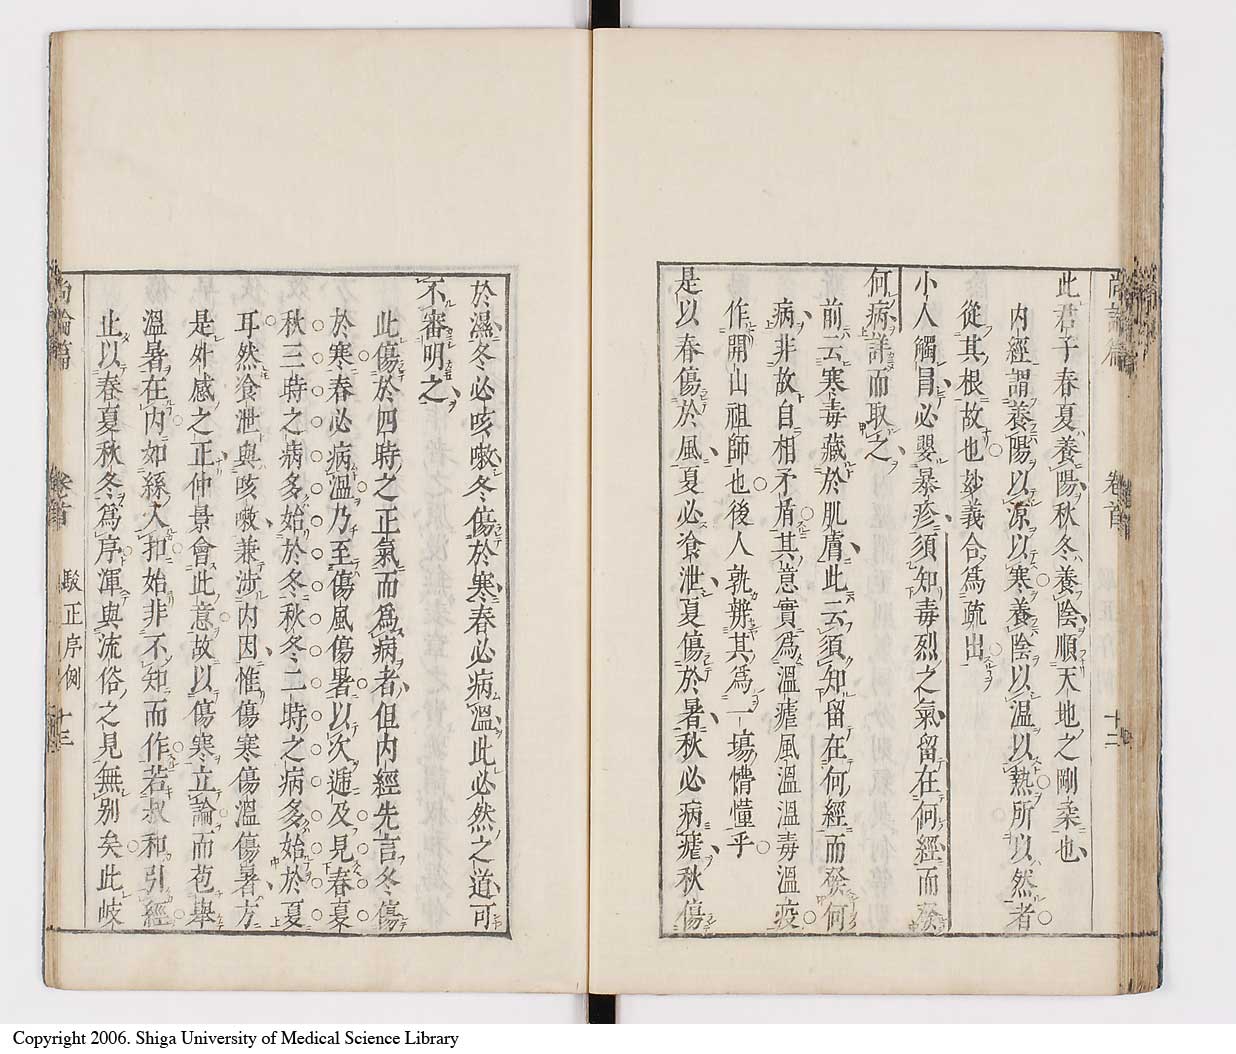 尚論篇 卷首 十二
此君子春夏養陽秋冬養陰順天地之剛柔也
內經謂養陽以凉以寒養陰以温以熱所以然者
從其根故也妙義合爲疏出
小人觸冒必嬰暴疹須知毒烈之氣留在何經而發
何病詳而取之
前云寒毒藏於肌膚此云須知留在何經而發何
病非故自相矛盾其意實爲溫瘧風溫溫毒溫疫
作開山祖師也後人孰辨其爲一塲懵懂乎
是以春傷於風夏必飡泄夏傷於暑秋必病瘧秋傷
於濕冬必咳嗽冬傷於寒春必病溫此必然之道可
不審明之
此傷於四時之正氣而爲病者但內經先言冬傷
於寒春必病溫乃至傷風傷暑以次遞及見春夏
秋三時之病多始於冬秋冬二時之病多始於夏
耳然飡泄與咳嗽兼涉內因惟傷寒傷溫傷暑方
是外感之正仲景會此意故以傷寒立論而苞舉
溫暑在內如絲入扣始非不知而作若叔和引經
止以春夏秋冬爲序渾與流俗之見無别矣此岐
尚論篇 卷首 駁正序例 十三
Copyright 2006. Shiga University of Medical Science Library